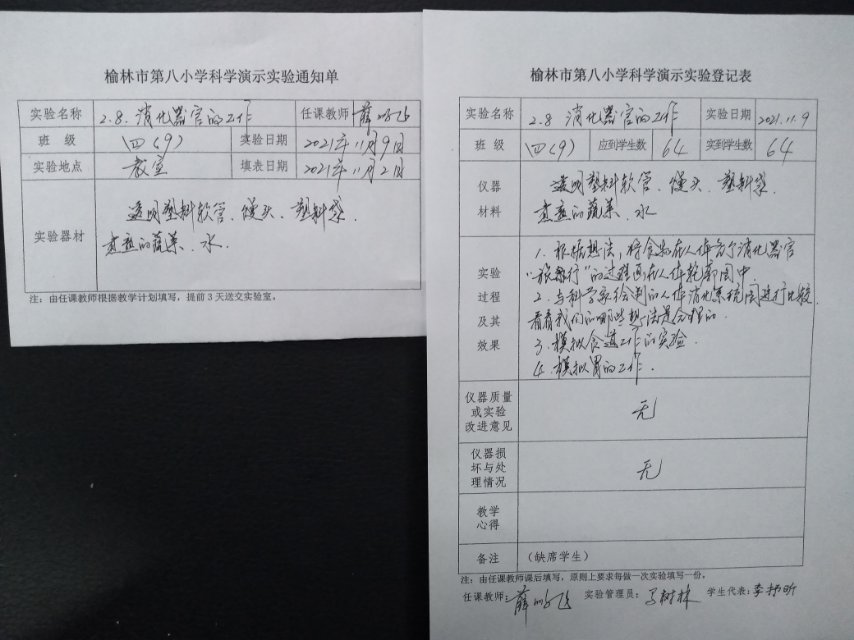 榆林市第八小学科学演示实验通知单
实验名称 2.8.消化器官的工作 任课教师 薛
班 级 四(9) 实验日期 2021年11月9日
实验地点 教室 填表日期 2021年11月2日
实验器材 透明塑料软管、馒头、塑料袋、
煮熟的蔬菜、水.
注：由任课教师根据教学计划填写，提前3天送交实验室。
榆林市第八小学科学演示实验登记表
实验名称 2.8 消化器官的工作 实验日期 2021.11.9
班 级 四(9) 应到学生数 64 实到学生数 64
仪器
材料
透明塑料软管、馒头、塑料袋、
煮熟的蔬菜、水
实验
过程
及其
效果
1.根据想法,将食物在人体内消化器官
“旅行”的过程画在人体轮廓图中.
2.与科学家绘制的人体消化系统图进行比较,
看看我们的哪些想法是合理的.
3.模拟食道工作的实验.
4.模拟胃的工作.
仪器质量
或实验
改进意见
无
仪器损
坏与处
理情况
无
教学
心得
备注 （缺席学生）
注：由任课教师课后填写，原则上要求每做一次实验填写一份。
任课教师：薛 实验管理员： 树林 学生代表：李